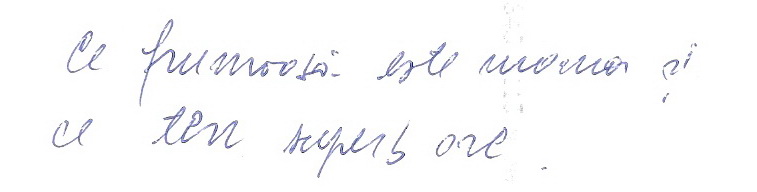 Ce frumoasă este mama și
ce ten superb are.